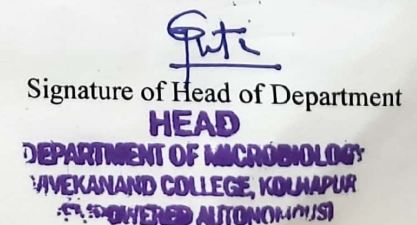 Signature of Head of Department
HEAD
DEPARTMENT OF MICROBIOLOGY
VIVEKANAND COLLEGE, KOLHAPUR
(EMPOWERED AUTONOMOUS)